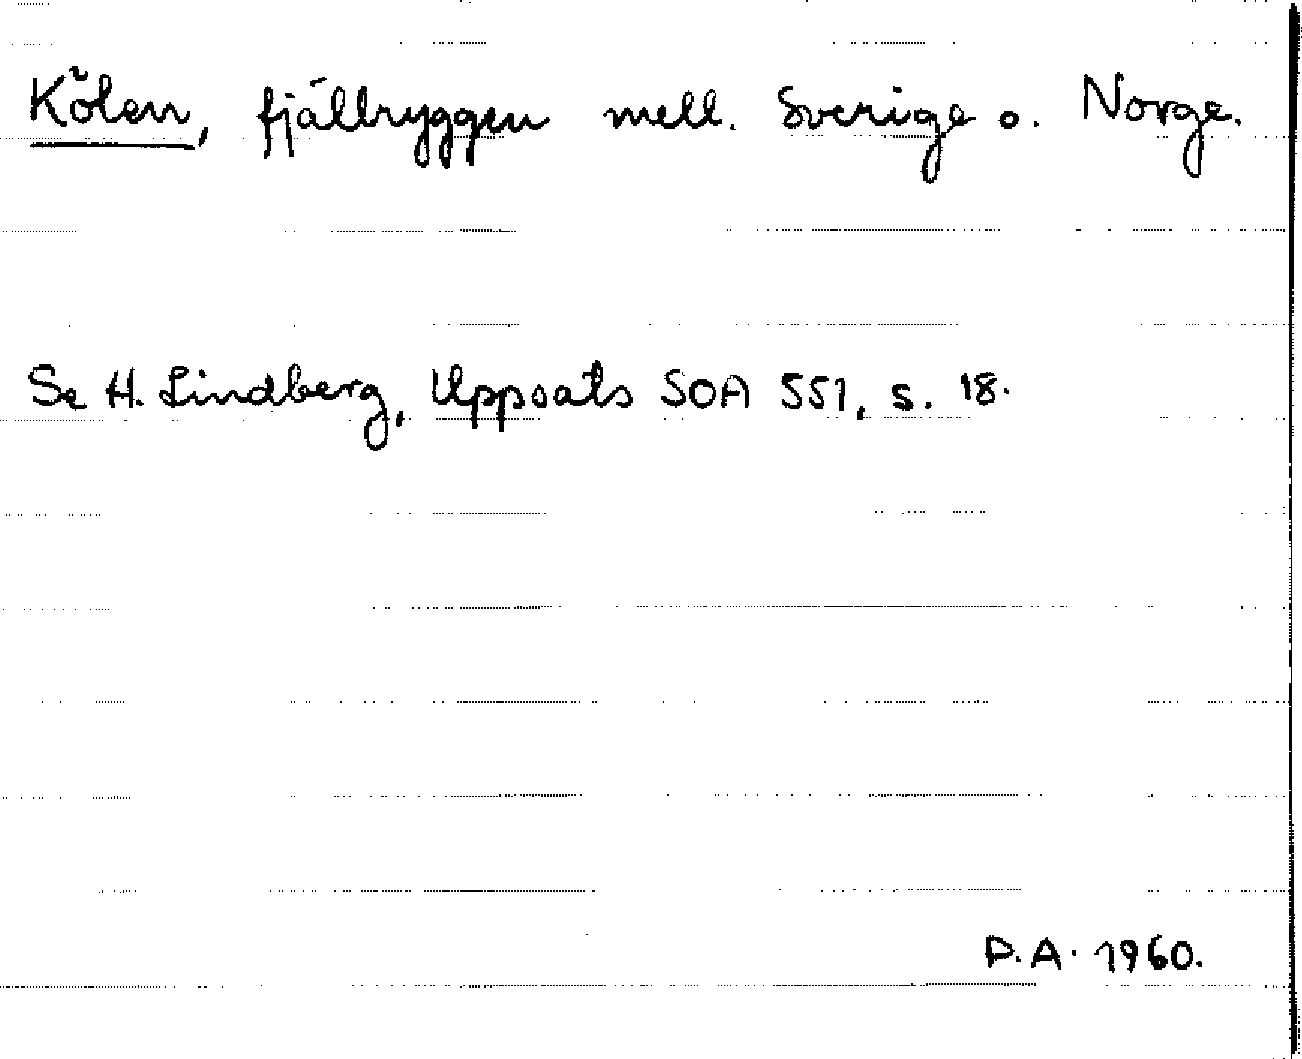 Kölen, fjällryggen mell. Sverige o. Norge.
Se H. Lindberg, Uppsats SOA 551, s. 18.
D.A. 1960.